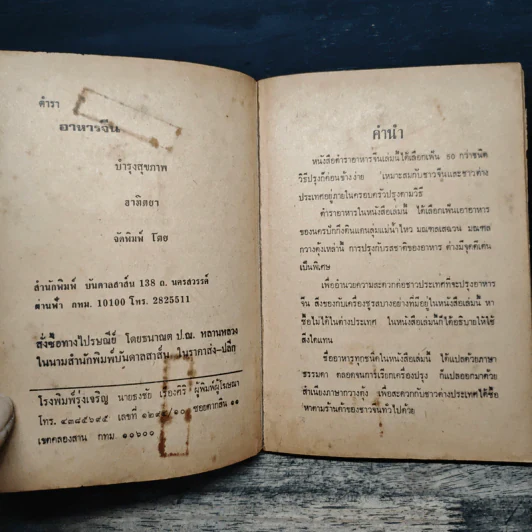 ตำรา
อาหารจีน
บำรุงสุขภาพ
อาทิตยา
จัดพิมพ์ โดย
สำนักพิมพ์ บันดาลสาส์น 138 ถ. นครสวรรค์
ผ่านฟ้า กทม. 10100 โทร. 2825511
สั่งซื้อทางไปรษณีย์ โดยธนาณัต ป.ณ. หลานหลวง
ในนามสำนักพิมพ์บันดาลสาส์น, ในราคาส่ง-ปลีก
โรงพิมพ์รุ่งเจริญ นายธงชัย เรืองศิริ ผู้พิมพ์ผู้โฆษณา
โทร. ๔๓๘๕๖๙๕ เลขที่ ซอยตากสิน ๑๑
เขตคลองสาน กทม ๑๐๖๐๐
คำนำ
หนังสือตำราอาหารจีนเล่มนี้ได้เลือกเฟ้น ๕๐ กว่าชนิด
วิธีปรุงก็ค่อนข้างง่าย เหมาะสมกับชาวจีนและชาวต่าง
ประเทศอยู่ภายในครอบครัวปรุงตามวิธี
ตำราอาหารในหนังสือเล่มนี้ ได้เลือกเฟ้นเอาอาหาร
ของนครปักกิ่งดินแดนลุ่มแม่น้ำไหว มณฑลเสฉวน มณฑล
กวางตุ้งเหล่านี้ การปรุงกับรสชาติของอาหาร ต่างมีจุดดีเด่น
เป็นพิเศษ
เพื่ออำนวยความสะดวกต่อชาวประเทศที่จะปรุงอาหาร
จีน สิ่งของกับเครื่องชูรสบางอย่างที่มีอยู่ในหนังสือเล่มนี้ หา
ซื้อไม่ได้ในต่างประเทศ ในหนังสือเล่มนี้ก็ได้อธิบายให้ใช้
สิ่งใดแทน
ชื่ออาหารทุกชนิดในหนังสือเล่มนี้ ได้แปลด้วยภาษา
ธรรมดา ตลอดจนการเรียกเครื่องปรุง ก็แปลออกมาด้วย
สำเนียงภาษากวางตุ้ง เพื่อสะดวกกับชาวต่างประเทศได้ซื้อ
หาตามร้านค้าของชาวจีนทั่วไปด้วย